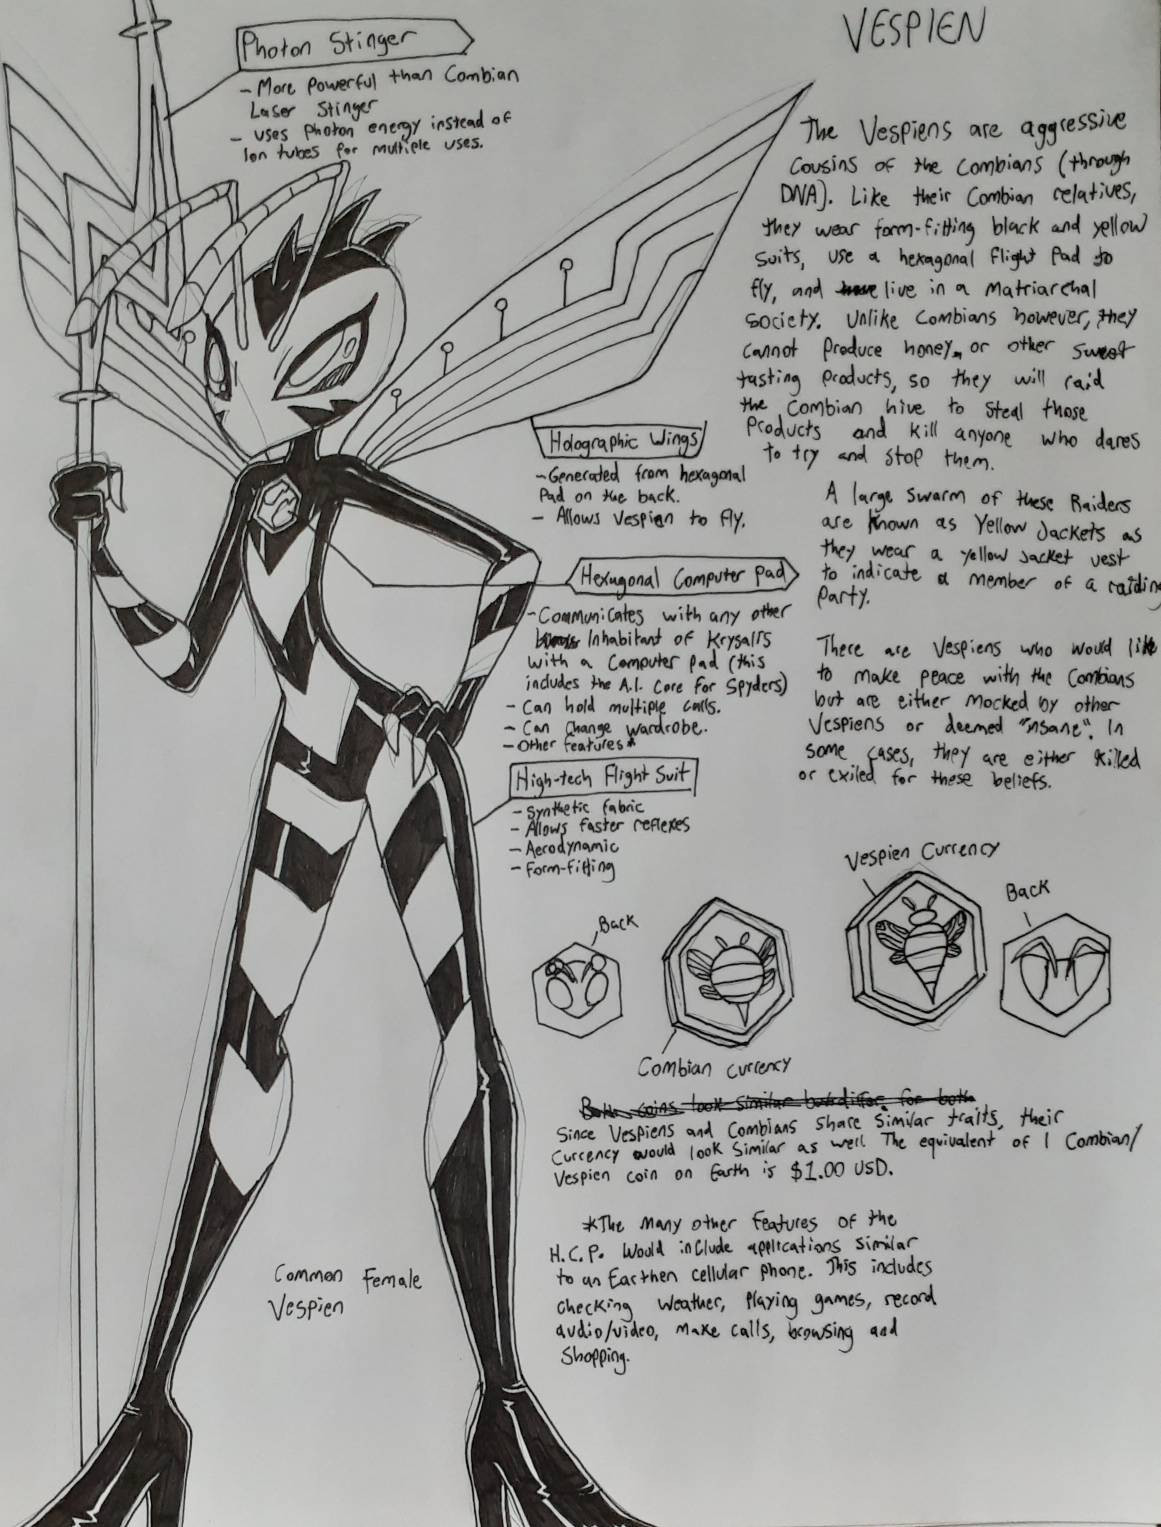 VESPIEN
Photon Stinger
- More powerful than Combian
Laser Stinger
- uses photon energy instead of
Ion tubes for multiple uses.
The Vespiens are aggressive
cousins of the Combians (through
DNA). Like their Combian relatives,
they wear form-fitting black and yellow
suits, use a hexagonal flight pad to
fly, and live in a Matriarchal
society. Unlike Combians however, they
cannot produce honey or other sweet
tasting products, so they will raid
the Combian hive to steal those
products and kill anyone who dares
to try and stop them.
A large swarm of these Raiders
are known as Yellow Jackets as
they wear a yellow jacket vest
to indicate a member of a raiding
party.
There are Vespiens who would like
to make peace with the Combians
but are either mocked by other
Vespiens or deemed "insane". In
some cases, they are either killed
or exiled for these beliefs.
Holographic Wings
- Generated from hexagonal
pad on the back.
- Allows Vespian to fly.
Hexagonal Computer Pad
- Communicates with any other
Inhabitant of Krysalis
with a Computer pad (this
includes the A.I. Core for Spyders)
- Can hold multiple calls.
- Can change wardrobe.
- Other features*
High-tech Flight Suit
- Synthetic fabric
- Allows faster reflexes
- Aerodynamic
- Form-fitting
Vespien Currency
Back
Back
Combian currency
Both coins look similar but differ for both
Since Vespiens and Combians share similar traits, their
currency would look similar as well. The equivalent of 1 Combian/
Vespien coin on Earth is $1.00 USD.
*The many other features of the
H.C.P. would include applications similar
to an Earthen cellular phone. This includes
checking weather, playing games, record
audio/video, make calls, browsing and
shopping.
Common Female
Vespien